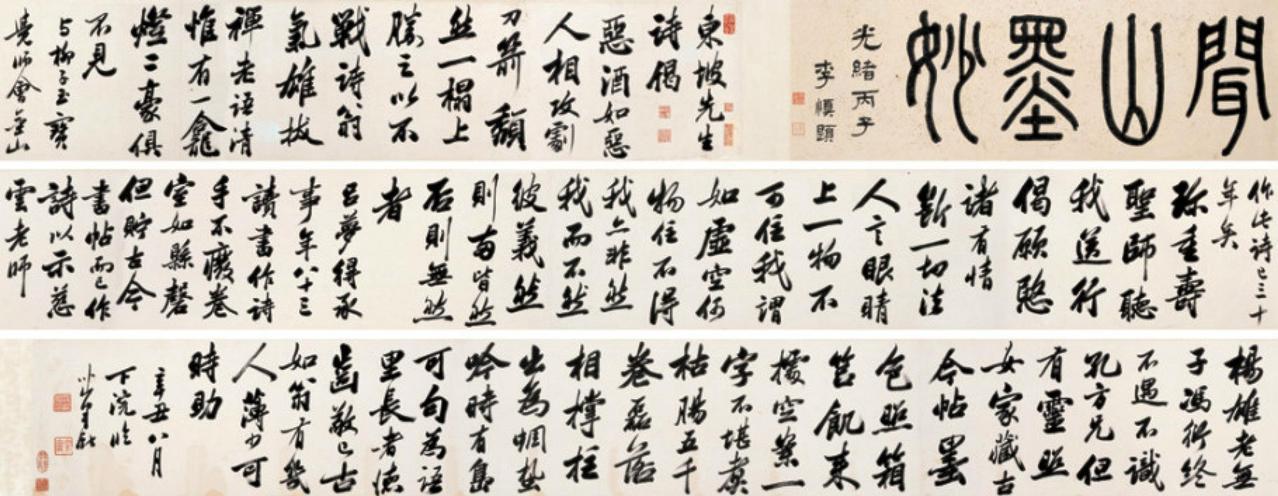 聞山墨妙
光緒丙子
李慎題
東坡先生
詩偈
惡酒如惡
人相攻劇
刀箭頹
然一榻上
勝之以不
戰詩翁
氣雄拔
禪老語清
惟有一龕
燈二豪俱
不見
与柳子玉寶
覺師會金山
作此詩已三十
年矣
珎重壽
聖師聽
我送行
偈願愍
諸有情
斷一切法
人言眼睛
上一物不
可住我謂
如虛空何
物住不得
我亦非然
我而不然
彼義然
則兩皆然
否則無然
者
呂夢得承
事年八十三
讀書作詩
手不廢卷
室如縣磬
但貯古今
書帖而已作
詩以示慈
雲老師
楊雄老無
子馮衍終
不遇不識
孔方兄但
有靈照
女家藏古
今帖墨
色照箱
筥飢來
據空案一
字不堪煮
枯腸五千
卷磊落
相撐拄
出為蜩蛩
吟時有島
可句為語
里長者德
齒敬已古
如翁有幾
人薄少可
時助
辛丑八月
下浣臨